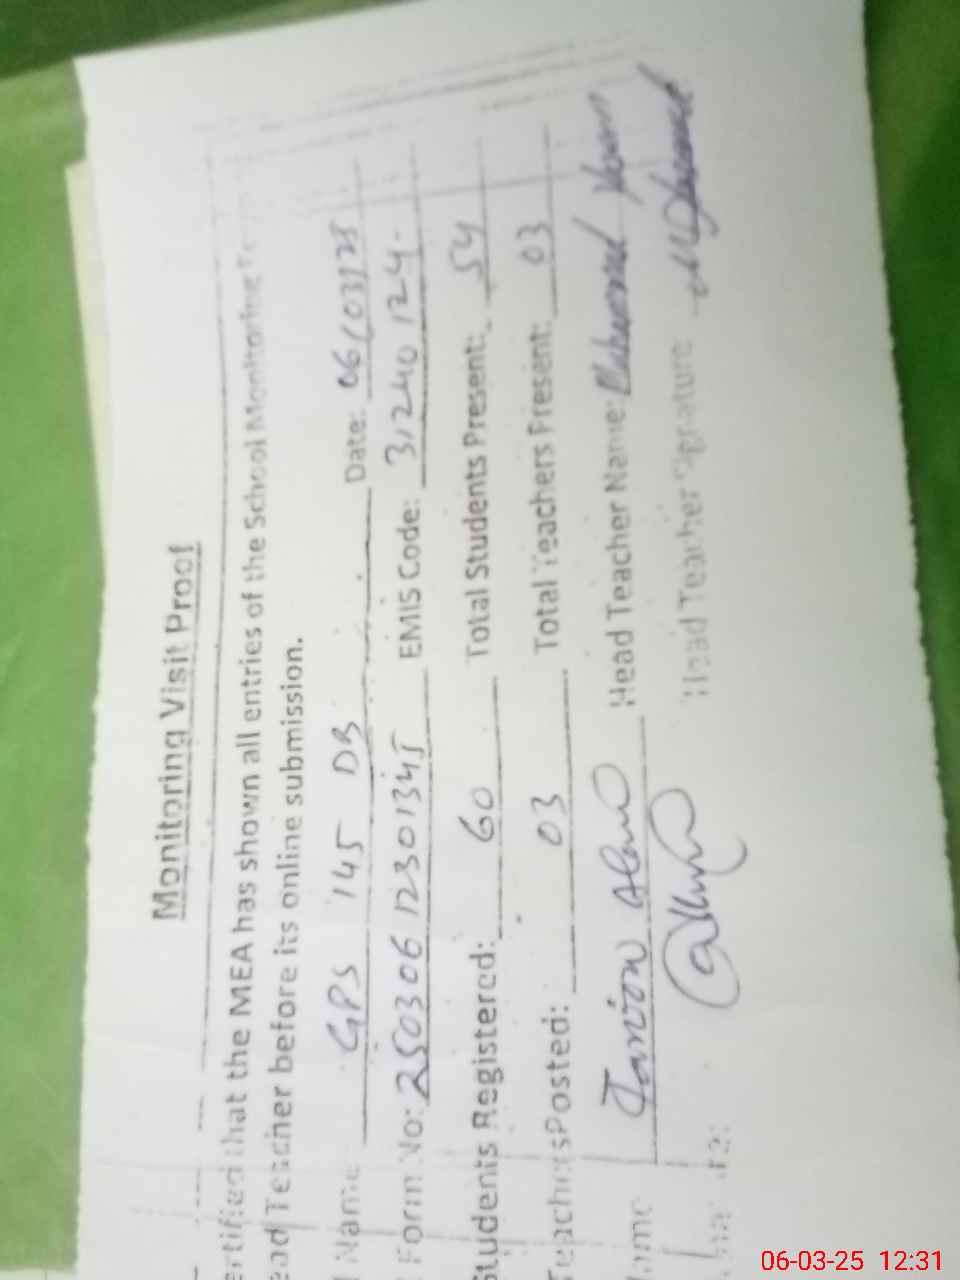 Monitoring Visit Proof
ertified that the MEA has shown all entries of the School Monitoring
ead Teacher before its online submission.
Name GPS 145 DB Date: 06/03/25
Form No: 25030612301345 EMIS Code: 31240124.
Students Registered: 60 Total Students Present: 54
Teachers Posted: 03 Total Teachers Present: 03
ame Head Teacher Name: Muhammad
Head Teacher Signature
06-03-25 12:31